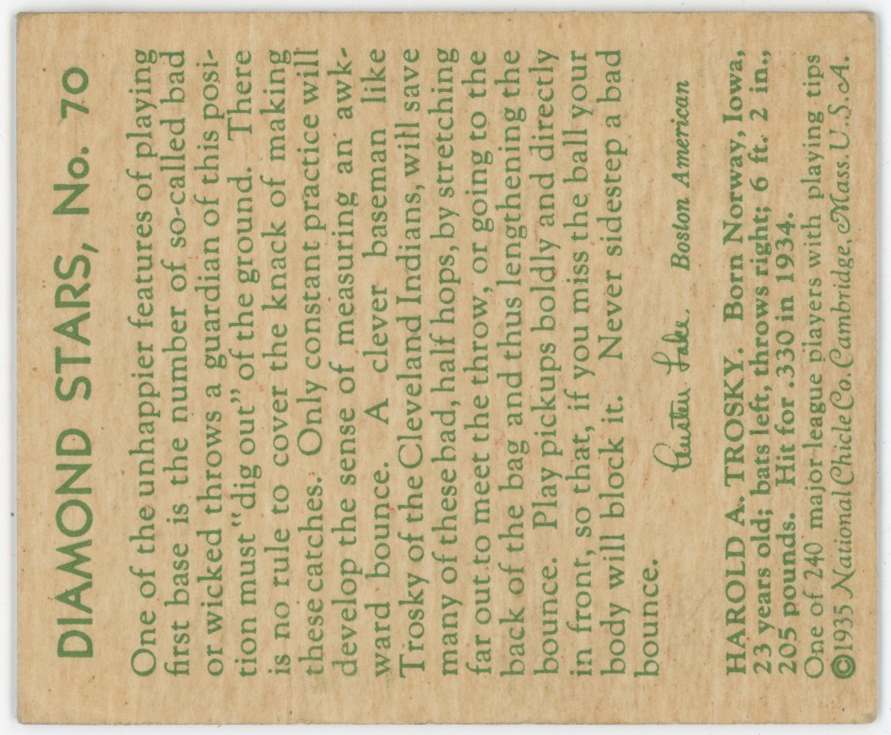 DIAMOND STARS, No. 70
One of the unhappier features of playing
first base is the number of so-called bad
or wicked throws a guardian of this posi-
tion must "dig out" of the ground. There
is no rule to cover the knack of making
these catches. Only constant practice will
develop the sense of measuring an awk-
ward bounce. A clever baseman like
Trosky of the Cleveland Indians, will save
many of these bad, half hops, by stretching
far out to meet the throw, or going to the
back of the bag and thus lengthening the
bounce. Play pickups boldly and directly
in front, so that, if you miss the ball your
body will block it. Never sidestep a bad
bounce.
Austen Lake Boston American
HAROLD A. TROSKY. Born Norway, Iowa,
23 years old; bats left, throws right; 6 ft. 2 in.,
205 pounds. Hit for .330 in 1934.
One of 240 major-league players with playing tips
©1935 National Chicle Co. Cambridge, Mass. U.S.A.